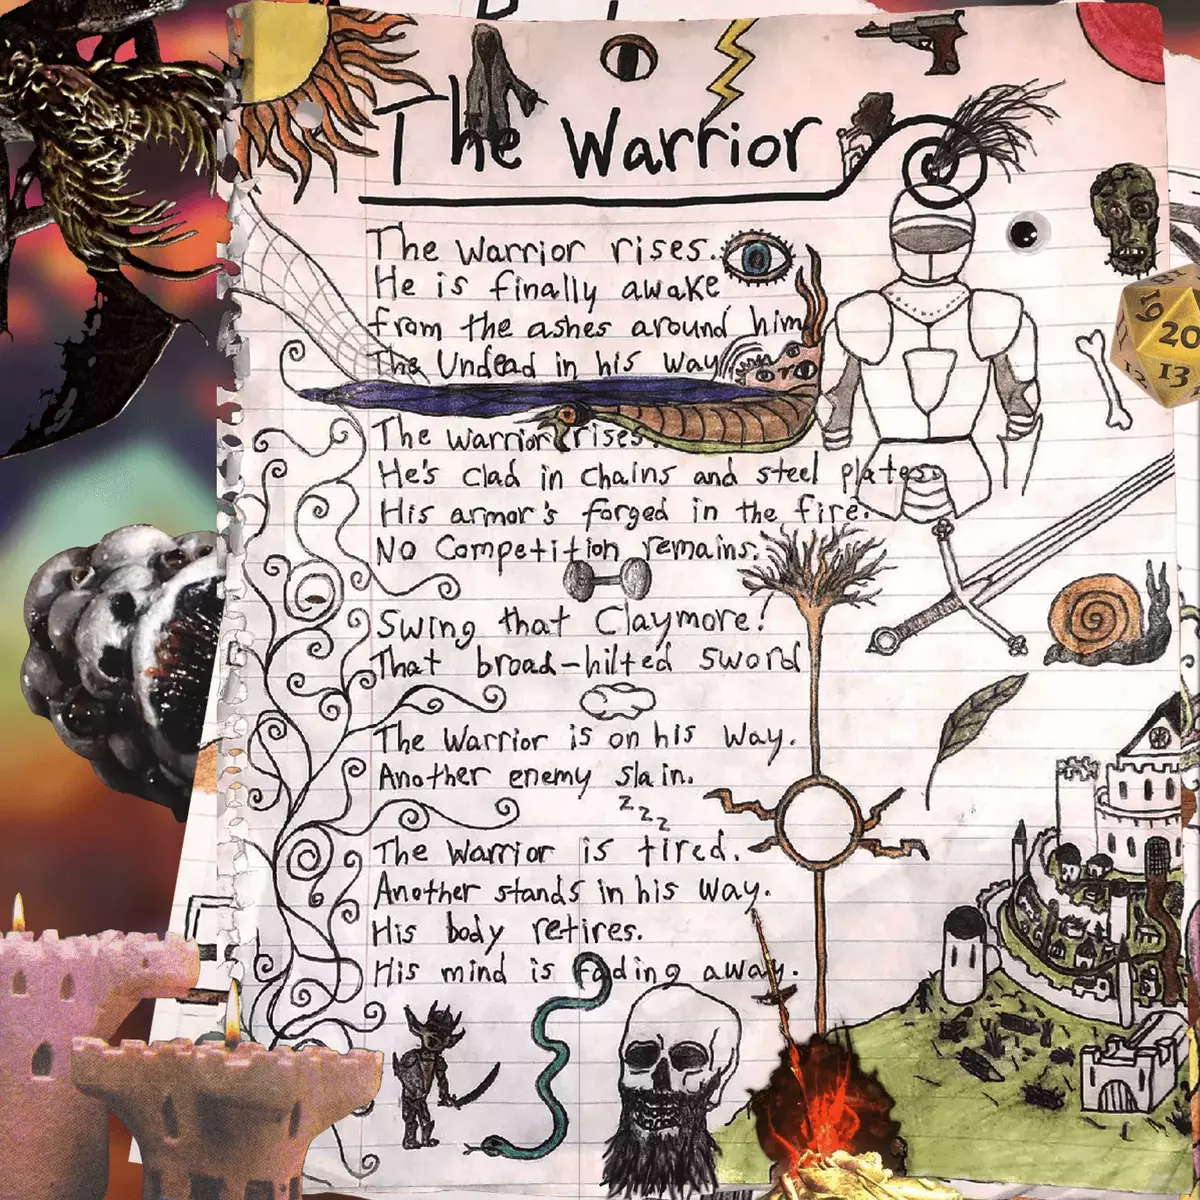 The Warrior
The Warrior rises.
He is finally awake
from the ashes around him
The Undead in his way
The Warrior rises.
He's clad in chains and steel plates
His armor's forged in the fire.
No Competition remains.
Swing that Claymore!
That broad-hilted sword
The Warrior is on his way.
Another enemy slain.
z z z
The Warrior is tired.
Another stands in his way.
His body retires.
His mind is fading away.
19
20
13
12